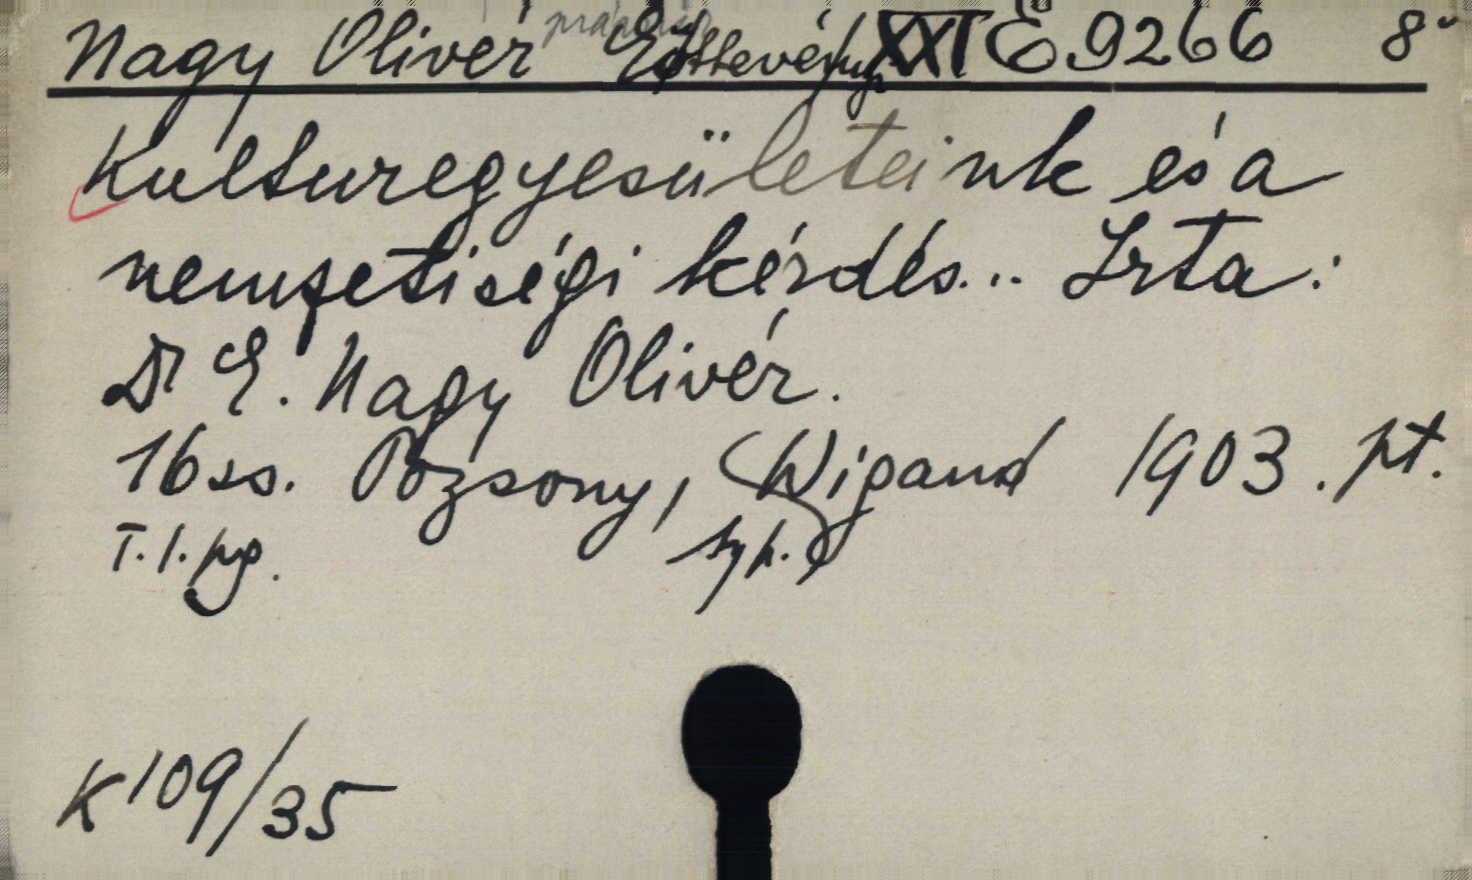 Nagy Olivér Eöttevényi XXI Ë.9266 8°
Kulturegyesületeink és a
nemzetiségi kérdés... Irta:
Dr E. Nagy Olivér.
16ss. Pozsony, Wigand 1903. pt.
T.1.pg. typ.
K109/35